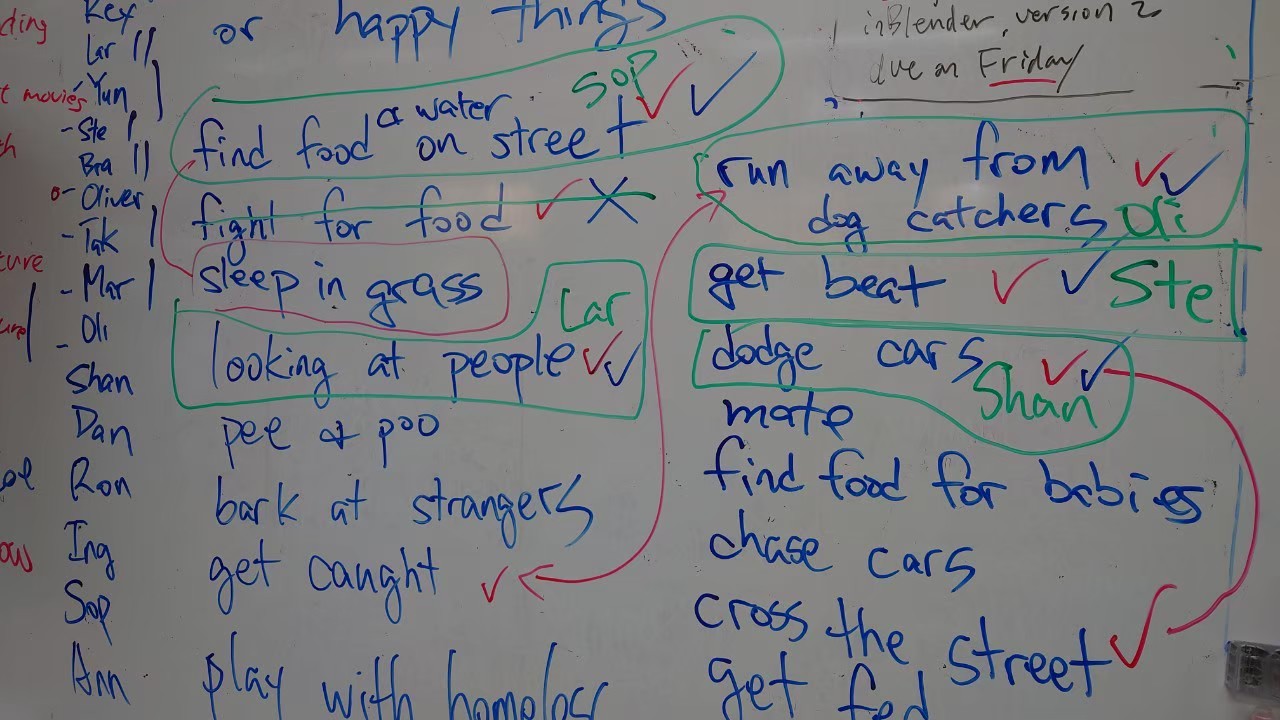 or happy things
find food & water on street Sop
fight for food
sleep in grass
looking at people Lar
pee & poo
bark at strangers
get caught
play with
in Blender, version 2
due on Friday
run away from
dog catchers Oli
get beat Ste
dodge cars Shan
mate
find food for babies
chase cars
cross the street
get fed
Key
Lar
Yun
- Ste
Bra
Oliver
- Tak
- Mar
- Oli
Shan
Dan
Ron
Ing
Sop
Ann
movies